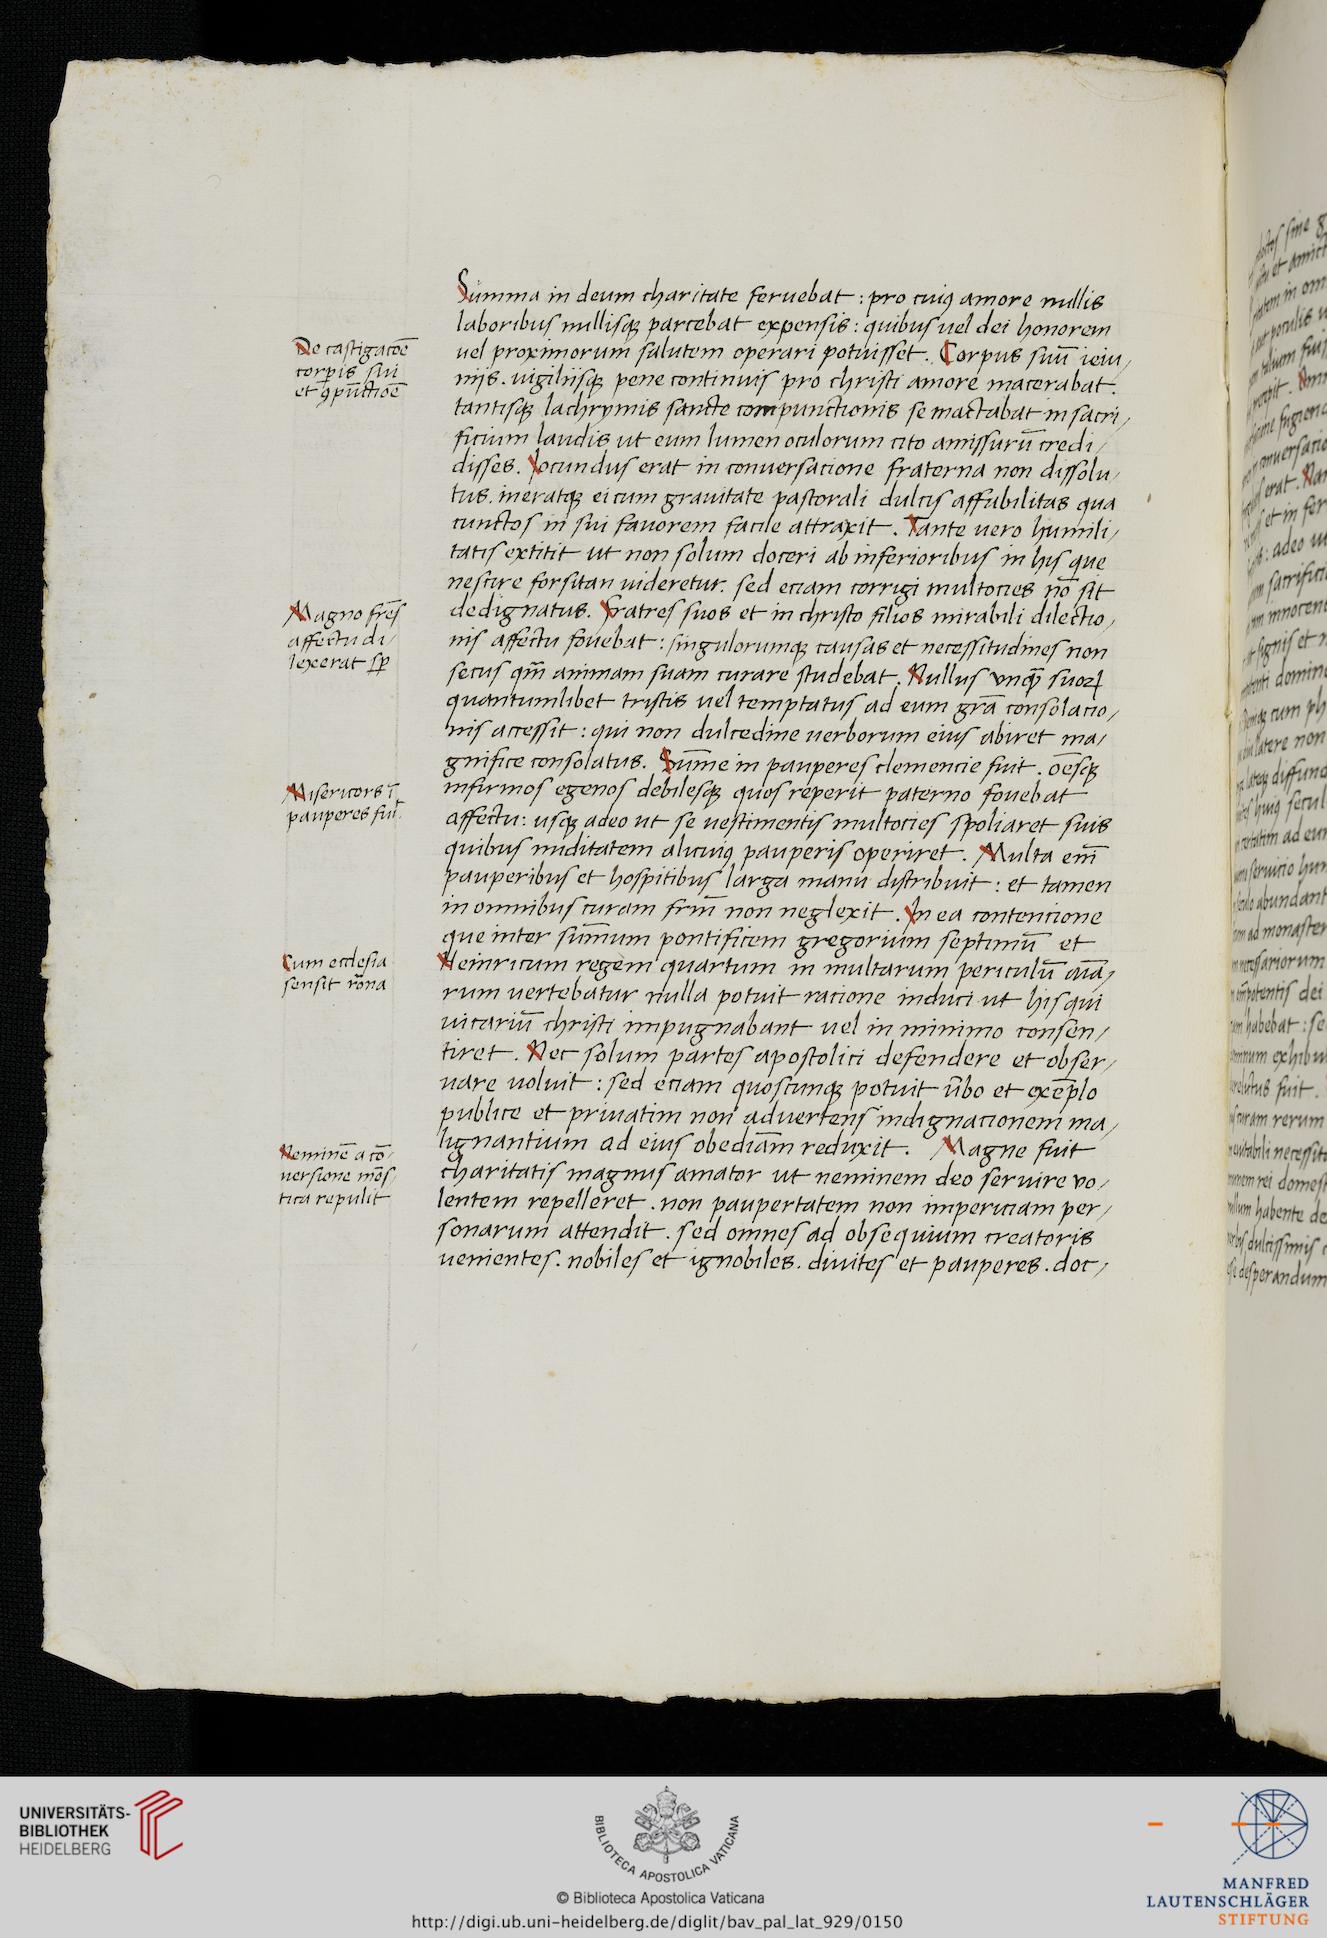 Summa in deum charitate feruebat : pro cuiꝰ amore nullis
laboribus nullisqꝫ parcebat expensis : quibus uel dei honorem
uel proximorum salutem operari potuisset . Corpus suū ieiu,
niis . uigiliisqꝫ pene continuis pro christi amore macerabat .
tantisqꝫ lachrymis sancte compunctionis se mactabat in sacri,
ficium laudis ut eum lumen oculorum cito amissurū credi,
disses . Iocundus erat in conuersacione fraterna non dissolu,
tus . ineratqꝫ ei cum grauitate pastorali dulcis affabilitas qua
cunctos in sui fauorem facile attraxit . Tante uero humili,
tatis extitit ut non solum doceri ab inferioribus in his que
nescire forsitan uideretur . sed eciam corrigi multocies nō sit
dedignatus . Fratres suos et in christo filios mirabili dilectio,
nis affectu fouebat : singulorumqꝫ causas et necessitudines non
secus qm̄ animam suam curare studebat . Nullus vnqꝫ̄ suoꝝ
quantumlibet tristis uel temptatus ad eum grā consolacio,
nis accessit : qui non dulcedine uerborum eius abiret ma,
gnifice consolatus . Sum̄e in pauperes clemencie fuit . oēsqꝫ
infirmos egenos debilesqꝫ quos reperit paterno fouebat
affectu : usqꝫ adeo ut se uestimentis multocies spoliaret suis
quibus nuditatem alicuiꝰ pauperis operiret . Multa em̄
pauperibus et hospitibus larga manu distribuit : et tamen
in omnibus curam frm̄ non neglexit . In ea contencione
que inter sum̄um pontificem gregorium septimū et
Heinricum regem quartum in multarum periculū aīa,
rum uertebatur nulla potuit racione induci ut his qui
uicariū christi impugnabant uel in minimo consen,
tiret . Nec solum partes apostolici defendere et obser,
uare uoluit : sed eciam quoscunqꝫ potuit v̄bo et exēplo
publice et priuatim non aduertens indignacionem ma,
lignantium ad eius obediām reduxit . Magne fuit
charitatis magnus amator ut neminem deo seruire vo,
lentem repelleret . non paupertatem non impericiam per,
sonarum attendit . sed omnes ad obsequium creatoris
uenientes . nobiles et ignobiles . diuites et pauperes . doc,
De castigacōe
corp̄is sui
et ꝯpūctiōe
Magno fr̄es
affectu di,
lexerat sp̄
Misericors ī
pauperes fuit
Cum ecclesia
sensit rōna
Neminē a cō,
uersione mōs,
tica repulit
UNIVERSITÄTS-
BIBLIOTHEK
HEIDELBERG
BIBLIOTECA APOSTOLICA VATICANA
© Biblioteca Apostolica Vaticana
http://digi.ub.uni-heidelberg.de/diglit/bav_pal_lat_929/0150
MANFRED
LAUTENSCHLÄGER
STIFTUNG